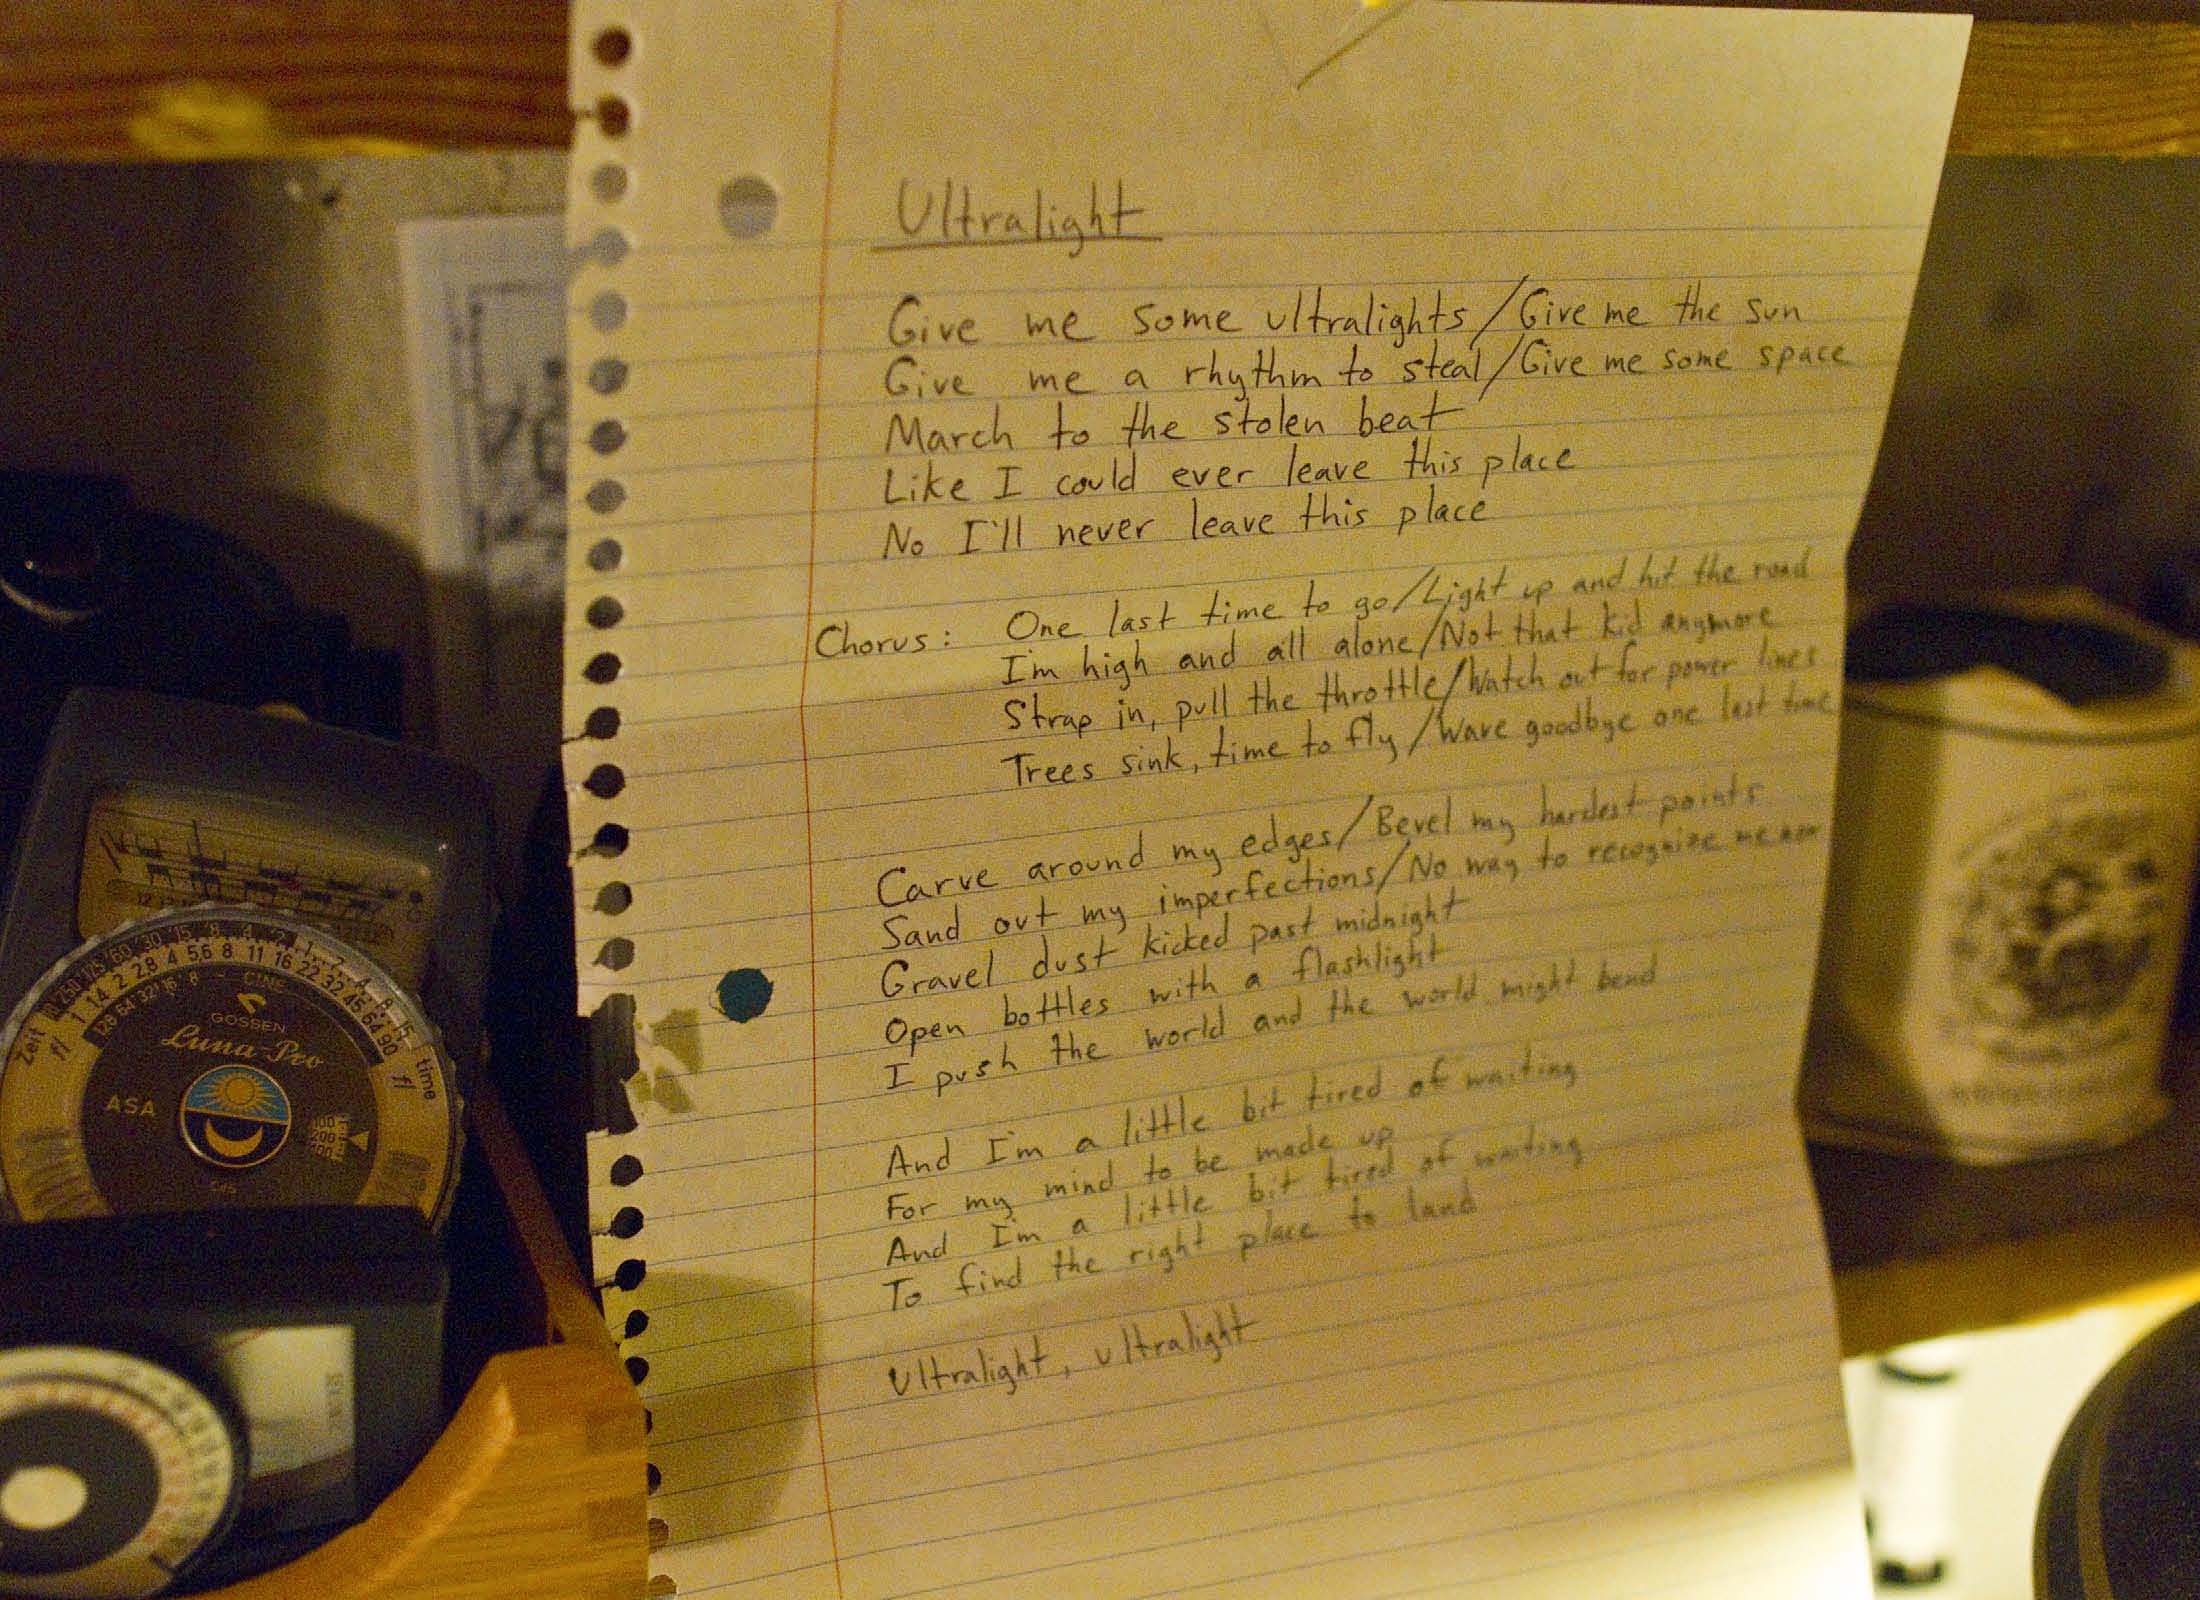 Ultralight
Give me some ultralights/Give me the sun
Give me a rhythm to steal/Give me some space
March to the stolen beat
Like I could ever leave this place
No I'll never leave this place
Chorus: One last time to go/Light up and hit the road
I'm high and all alone/Not that kid anymore
Strap in, pull the throttle/Watch out for power lines
Trees sink, time to fly/Wave goodbye one last time
Carve around my edges/Bevel my hardest points
Sand out my imperfections/No way to recognize me now
Gravel dust kicked past midnight
Open bottles with a flashlight
I push the world and the world might bend
And I'm a little bit tired of waiting
For my mind to be made up
And I'm a little bit tired of waiting
To find the right place to land
Ultralight, ultralight
Zeit
time
f/
1 1.4 2 2.8 4 5.6 8 11 16 22 32 45 64 90
f/
CINE
GOSSEN
Luna-Pro
ASA